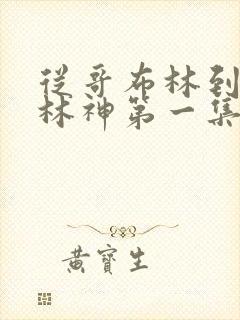 從哥布林到
林神第一集
黃寶生